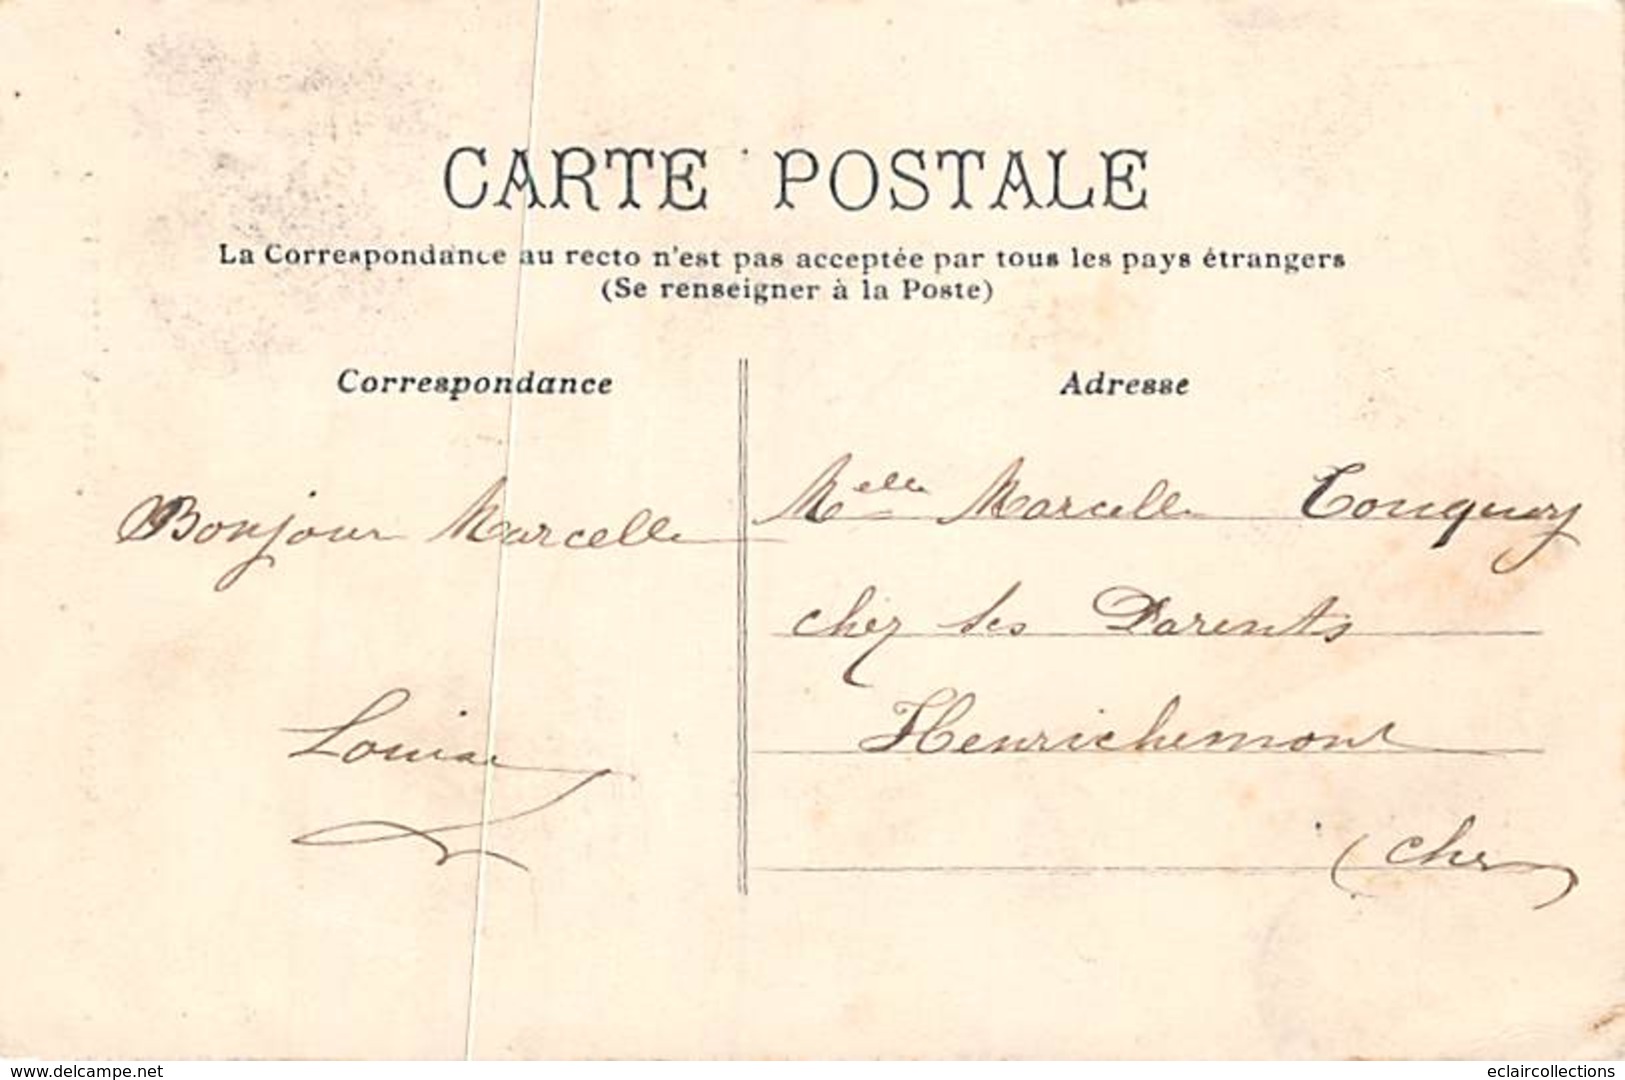 CARTE POSTALE
La Correspondance au recto n'est pas acceptée par tous les pays étrangers
(Se renseigner à la Poste)
Correspondance
Adresse
Bonjour Marcelle
Louise
Melle Marcelle Touquoy
chez ses Parents
Henrichemont
(Cher)
delcampe.net
eclaircollections